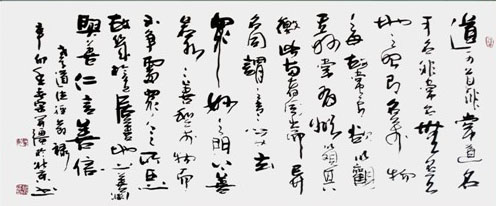 道可道非常道名
可名非常名無名天
地之始有名萬物
之母故常無欲以觀
其妙常有欲以觀其
徼此兩者同出而异
名同謂之玄
眾妙之門上善
若水水善利萬物而
不爭處眾人之所惡
故幾於道居善地心善淵
與善仁言善信
老子道德經節録
辛卯年 於北京